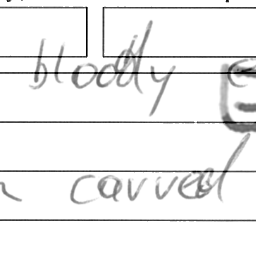 bloody
carved